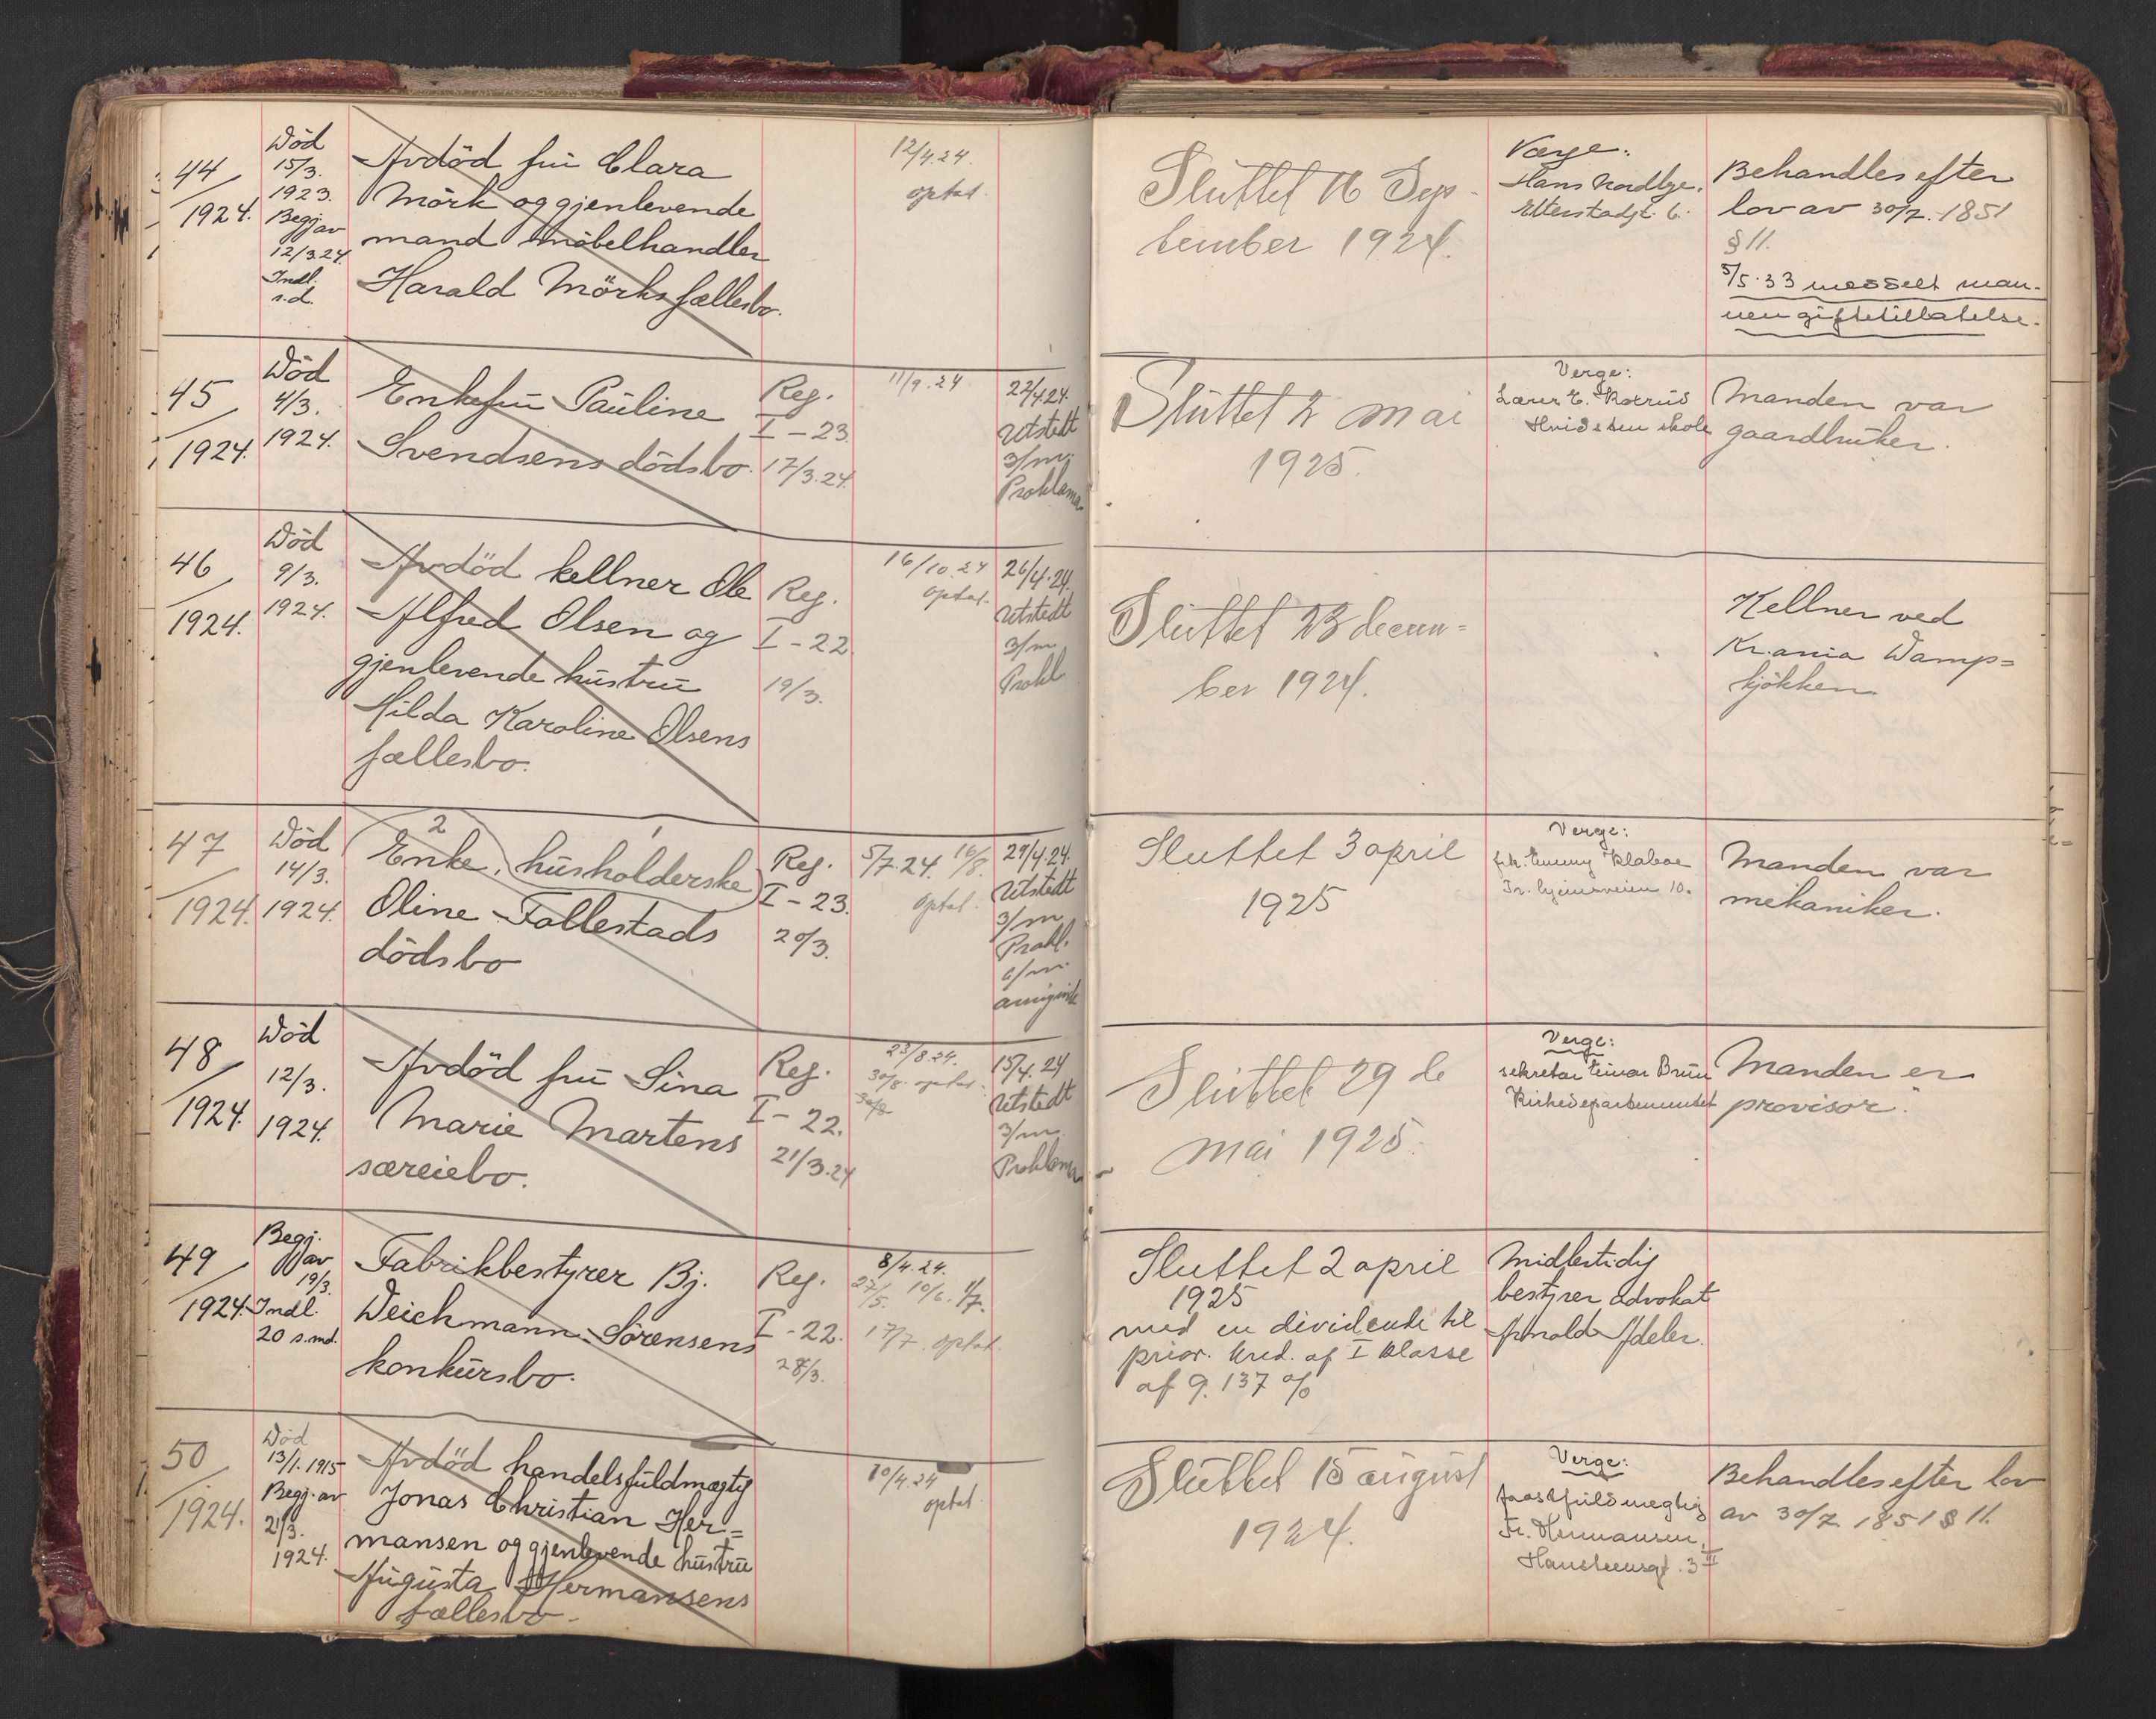 44
1924.
Död
15/3.
1923.
Begj av
12/3.24.
Indl.
s.d.
Avdöd frü Clara
Mörk og gjenlevende
mand möbelhandler
Harald Mörks fællesbo.
12/4.24.
optat.
Slüttet 16 Sep-
tember 1924.
Værge:
Hans Nordbye.
Etterstadgt. 6.
Behandles efter
lov av 30/7. 1851
§ 11.
5/5.33 meddelt man-
nen giftetillatelse.
45
1924.
Död
4/3.
1924.
Enkefrü Paüline
Svendsens dödsbo.
Reg.
I - 23.
17/3.24.
11/9.24
22/4.24.
Utstedt
3/m.
Proklama
Slüttet 2 mai
1925.
Verge:
Lærer E.
Hvidsten skole
Manden var
gaardbrüker.
46
1924.
Död
9/3.
1924.
Avdöd kellner Ole
Alfred Olsen og
gjenlevende hüstrü
Hilda Karoline Olsens
fællesbo.
Reg.
I - 22.
19/3.
16/10.24
optat.
26/4.24.
Utstedt
3/m
Prokl
Slüttet 23 decem=
ber 1924.
Kellner ved
Kr.ania Damp=
kjökken.
47
1924.
Död
14/3.
1924.
2 1
Enke, hüsholderske
Oline Fallestads
dödsbo
Reg.
I - 23.
20/3.
5/7.24. 16/8.
optat.
29/4.24.
Utstedt
3/m
Prokl.
6/m.
Sluttet 3 april
1925
Verge:
frk. Emmy Klaboe
10.
Manden var
mekaniker.
48
1924.
Död
12/3.
1924.
Avdöd frü Sina
Marie Martens
særeiebo.
Reg.
I - 22.
21/3.24
23/8.24.
30/8. optat.
15/4.24
Utstedt
3/m.
Proklama
Slüttet 29 de
mai 1925.
Verge:
sekretær Einar Brün
Kirkedepartementet
Manden er
provisor.
49
1924.
Begj.
av
19/3.
Indl.
20 s.md.
Fabrikbestyrer Bj.
Weichmann Sörensens
konkürsbo.
Reg.
I - 22.
28/3.
8/4.24.
27/5. 10/6. 1/7.
17/7. optat.
Sluttet 2 april
1925
med en dividende til
prior. kred. af I klasse
af 9.137 %
Midlertidig
bestyrer advokat
Arnold Adeler.
50
1924.
Död
13/1.1915
Begj. av
21/3.
1924.
Avdöd handelsfüldmægtig
Jonas Christian Her=
mansen og gjenlevende hüstrü
Aügüsta Hermansens
fællesbo.
10/4.24
optat.
Slüttet 15 aügüst
1924.
Verge:
Fr. Hermansen,
Hansteensgt. 3 II
Behandles efter lov
av 30/7 1851 § 11.